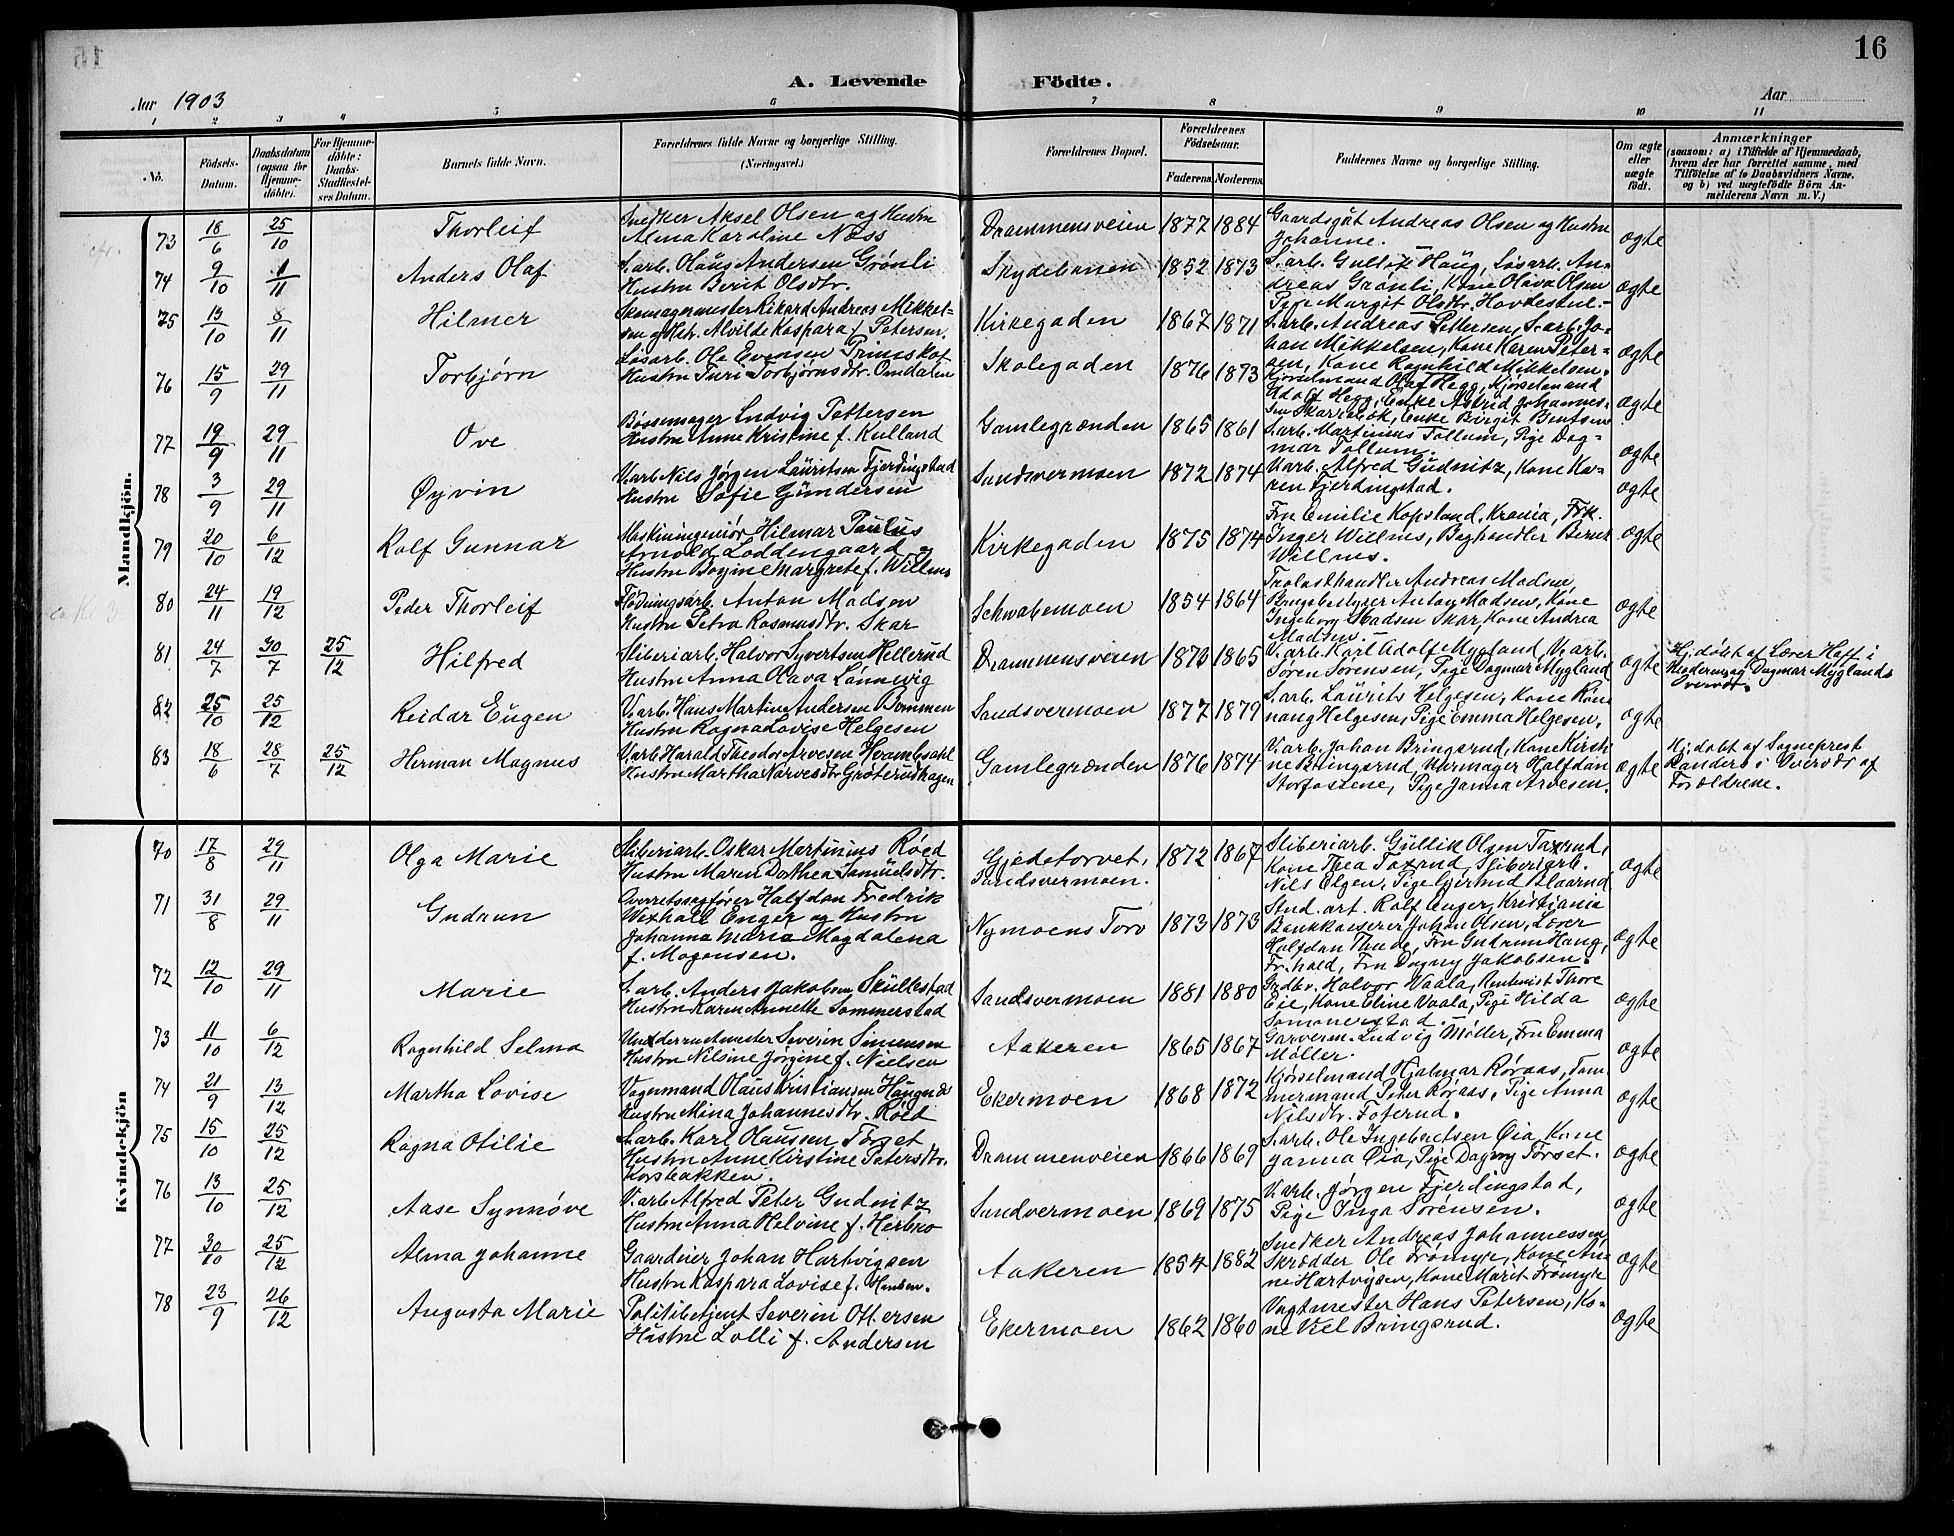 16
A. Levende Födte.
Aar 1903
Aar
1 2 3 4 5 6 7 8 9 10 11
No.
Födsels-Datum.
Daabsdatum (ogsaa for Hjemmedöbte).
For Hjemmedöbte: Daabs-Stadfæstelses Datum.
Barnets fulde Navn.
Forældrenes fulde Navne og borgerlige Stilling. (Næringsvei.)
Forældrenes Bopæl.
Forældrenes Födselsaar.
Faderens. Moderens.
Faddernes Navne og borgerlige Stilling.
Om ægte eller uægte født.
Anmærkninger
(saasom: a) i Tilfælde af Hjemmedaab, hvem der har forrettet samme, med Tilföielse af to Daabsvidners Navne, og b) ved uægtefödte Börn Anmelderens Navn m. V.)
Mandkjön.
73 18/6 25/10 Thorleif
Snedker Aksel Olsen og Hustru
Alma Karoline Næss
Drammensveien 1877 1884
Gaardsgåt Andreas Olsen og Hustru
Johanne.
ægte
74 9/10 1/11 Anders Olaf
S.arb. Olaus Andersen Grønli
Hustru Berit Olsdtr.
Skydebanen 1852 1873
S.arb. Gullik Haug, Løsarb. An-
dreas Grønli, Kone Olava Olsen
Pige Margit Olsdtr. Hovdestul.
ægte
75 13/10 8/11 Hilmer
Skomagermester Rikard Andreas Mikkel-
sen og Hstr. Alvilde Kaspara f. Petersen.
Kirkegaden 1867 1871
S.arb. Andreas Pettersen, S.arb. Jo-
han Mikkelsen, Kone Karen Peter-
sen, Kone Ragnhild Mikkelsen.
ægte
76 15/9 29/11 Torbjørn
Løsarb. Ole Evensen Primskot
Hustru Turi Torbjørnsdtr. Omdalen
Skolegaden 1876 1873
Kjørselmand Olaf Hegg, Kjørselmand
Adolf Hegg, Enke Astrid Johannes-
sen Skarrebæk, Enke Birgit Bentsen
ægte
77 19/9 29/11 Ove
Bøssemager Ludvig Pettersen
Hustru Anne Kristine f. Kulland
Gamlegrænden 1865 1861
S.arb. Martinius Tollum, Pige Dag-
mar Tollum.
ægte
78 3/9 29/11 Øyvin
V.arb. Nils Jørgen Lauritsen Fjerdingstad
Hustru Sofie Gundersen
Sandsvermoen 1872 1874
V.arb. Alfred Gudnitz, Kone Ka-
ren Fjerdingstad.
ægte
79 20/10 6/12 Rolf Gunnar
Maskiningeniør Hilmar Paulus
Arnold Loddengaard og
Hustru Margrete f. Willms
Kirkegaden 1875 1874
Fru Emilie Kopsland, Krania, Frk.
Inger Willms, Boghandler
Willms.
ægte
80 24/11 19/12 Peder Thorleif
Flødningsarb. Anton Madsen
Hustru Petra Rasmusdtr. Skar
Schwabemoen 1854 1864
Trælasthandler Andreas Madsen,
Brugsbestyrer Anton Madsen, Kone
Ingeborg Madsen Skar, Kone Andrea
Madsen.
ægte
81 24/7 30/7 25/12 Hilfred
Sliberiarb. Halvor Syvertsen Hellerud
Hustru Anna Olava Lønnevig
Drammensveien 1873 1865
V.arb. Karl Adolf Mygland, V.arb.
Søren Sørensen, Pige Dagmar Mygland
ægte
Hj. døbt af Lærer Hoff i
Moderens og Dagmar Myglands
Overvær.
82 25/10 25/12 Reidar Eugen
V.arb. Hans Martin Andersen Bommen
Hustru Ragna Lovise Helgesen
Sandsvermoen 1877 1879
S.arb. Laurits Helgesen, Kone Røn-
naug Helgesen, Pige Emma Helgesen.
ægte
83 18/6 28/7 25/12 Herman Magnus
V.arb. Harald Theodor Arvesen Hvambsahl
Hustru Martha Narvesdtr. Grøterudhagen
Gamlegrænden 1876 1874
V.arb. Johan Bringsrud, Kone Kirsti-
ne Bringsrud, Uhrmager Halfdan
Storfossene, Pige Janna Arvesen.
ægte
Hj. døbt af Sogneprest
Randers i Overvær af
Forældrene.
Kvindekjön
70 17/8 29/11 Olga Marie
Sliberiarb. Oskar Martinius Røed
Hustru Maren Dorthea Samuelsdtr.
Gjedetorvet, Sandsvermoen. 1872 1867
Sliberiarb. Gullik Olsen Taxrud,
Kone Thea Taxrud, Sliberiarb.
Nils Elgen, Pige Gjertrud Blaarud
ægte
71 31/8 29/11 Gudrun
Overretssagfører Halfdan Fredrik
Wexhall Enger og Hustru
Johanna Marie Magdalena
f. Mogensen.
Nymoens Torv 1873 1873
Stud. art. Rolf Enger, Kristiania
Bankkasserer Johan Olsen, Lærer
Halfdan Thude, Fru Gudrun Haug,
Fr.hald, Fru Dagny Jakobsen.
ægte
72 12/10 29/11 Marie
S.arb. Anders Jakobsen Skullestad
Hustru Karen Annette Sommerstad
Sandsvermoen 1881 1880
Grdbr. Halvor Vaala, Rentenist Thore
Eie, Kone Eline Vaala, Pige Hilda
Sommerstad.
ægte
73 11/10 6/12 Ragnhild Selma
Severin Simensen
Hustru Nilsine Jørgine f. Nielsen
Aakeren 1865 1867
Garverm. Ludvig Møller, Fru Emma
Møller.
ægte
74 21/9 13/12 Martha Lovise
Vognmand Olaus Kristiansen Haugnæs
Hustru Mina Johannesdtr. Røed
Ekermoen 1868 1872
Kjørselmand Hjalmar Røraas, Tøm-
mermand Peter Røraas, Pige Anna
Nilsdtr. Foferud.
ægte
75 15/10 25/12 Ragna Otilie
S.arb. Karl Olaussen Torset
Hustru Anne Kirstine Petersdtr.
Korsbakken.
Drammenveien 1866 1869
S.arb. Ole Ingebretsen Øia, Kone
Janna Øia, Pige Dagny Torset.
ægte
76 13/10 25/12 Aase Synnøve
V.arb. Alfred Peter Gudnitz
Hustru Anna Helvine f. Herbro
Sandvermoen 1869 1875
V.arb. Jørgen Fjerdingstad,
Pige Inga Sørensen.
ægte
77 30/10 25/12 Alma Johanne
Gaardeier Johan Hartvigsen
Hustru Kaspara Lovise f. Hansen.
Aakeren 1854 1882
Snedker Andreas Johannessen
Skrædder Ole Frømyr, Kone An-
ne Hartvigsen, Kone Marit Frømyr
ægte
78 23/9 26/12 Augusta Marie
Politibetjent Severin Ottersen
Hustru Lolli f. Andersen
Ekermoen 1862 1860
Vagtmester Hans Petersen, Ko-
ne Bringsrud.
ægte